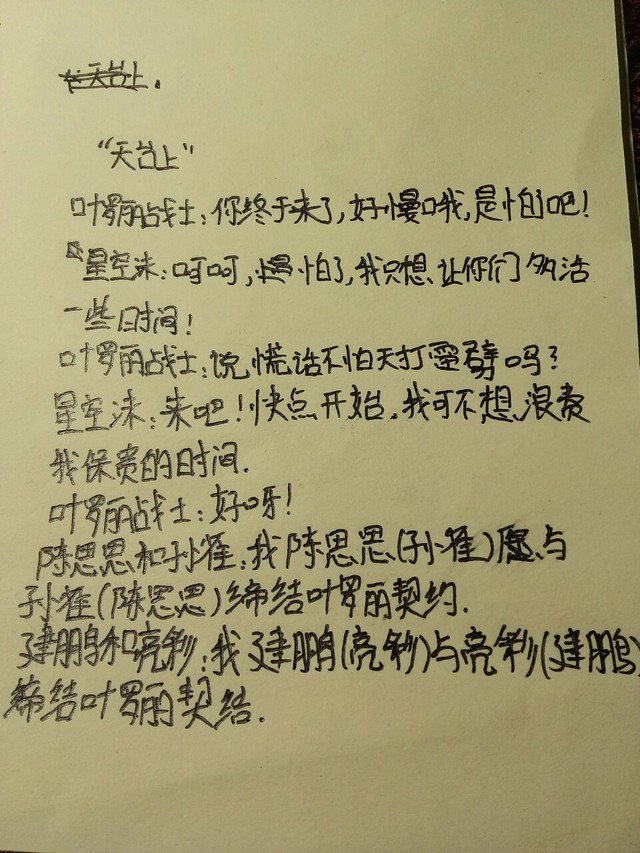 天台上.
“天台上”
叶罗丽战士:你终于来了,好慢哦,是怕了吧!
星空沫:呵呵,怕了,我只想让你们多活
一些日时间!
叶罗丽战士:说慌话不怕天打雷劈吗?
星空沫:来吧!快点开始,我可不想浪费
我保费的时间.
叶罗丽战士:好呀!
陈思思和孙雀:我陈思思(孙雀)愿与
孙雀(陈思思)缔结叶罗丽契约.
建鹏和亮彩:我建鹏(亮彩)与亮彩(建鹏)
缔结叶罗丽契结.